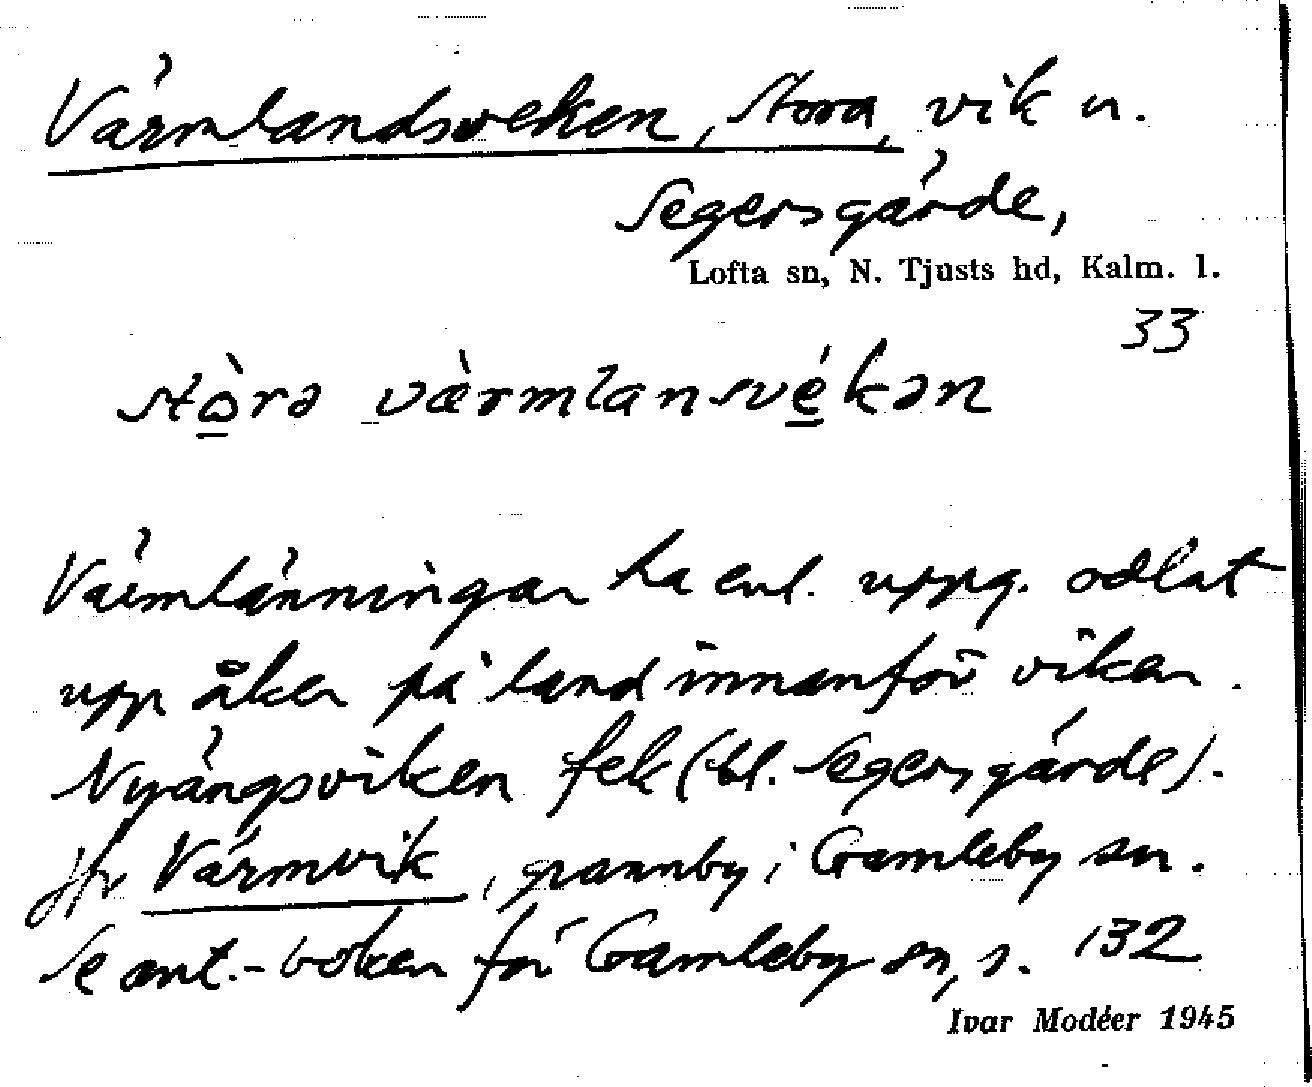 Värmlandsveken, Stora, vik u.
Segersgärde,
Lofta sn, N. Tjusts hd, Kalm. l.
33
stò̲rə værmlansvé̲kən
Värmlänningar ha enl. uppg. odlat
upp åker på land innanför viken.
Nyängsviken fek (bl. Segersgärde).
Jfr Värmvik, grannby i Gamleby sn.
Se ant.-boken för Gamleby sn, s. 132
Ivar Modéer 1945